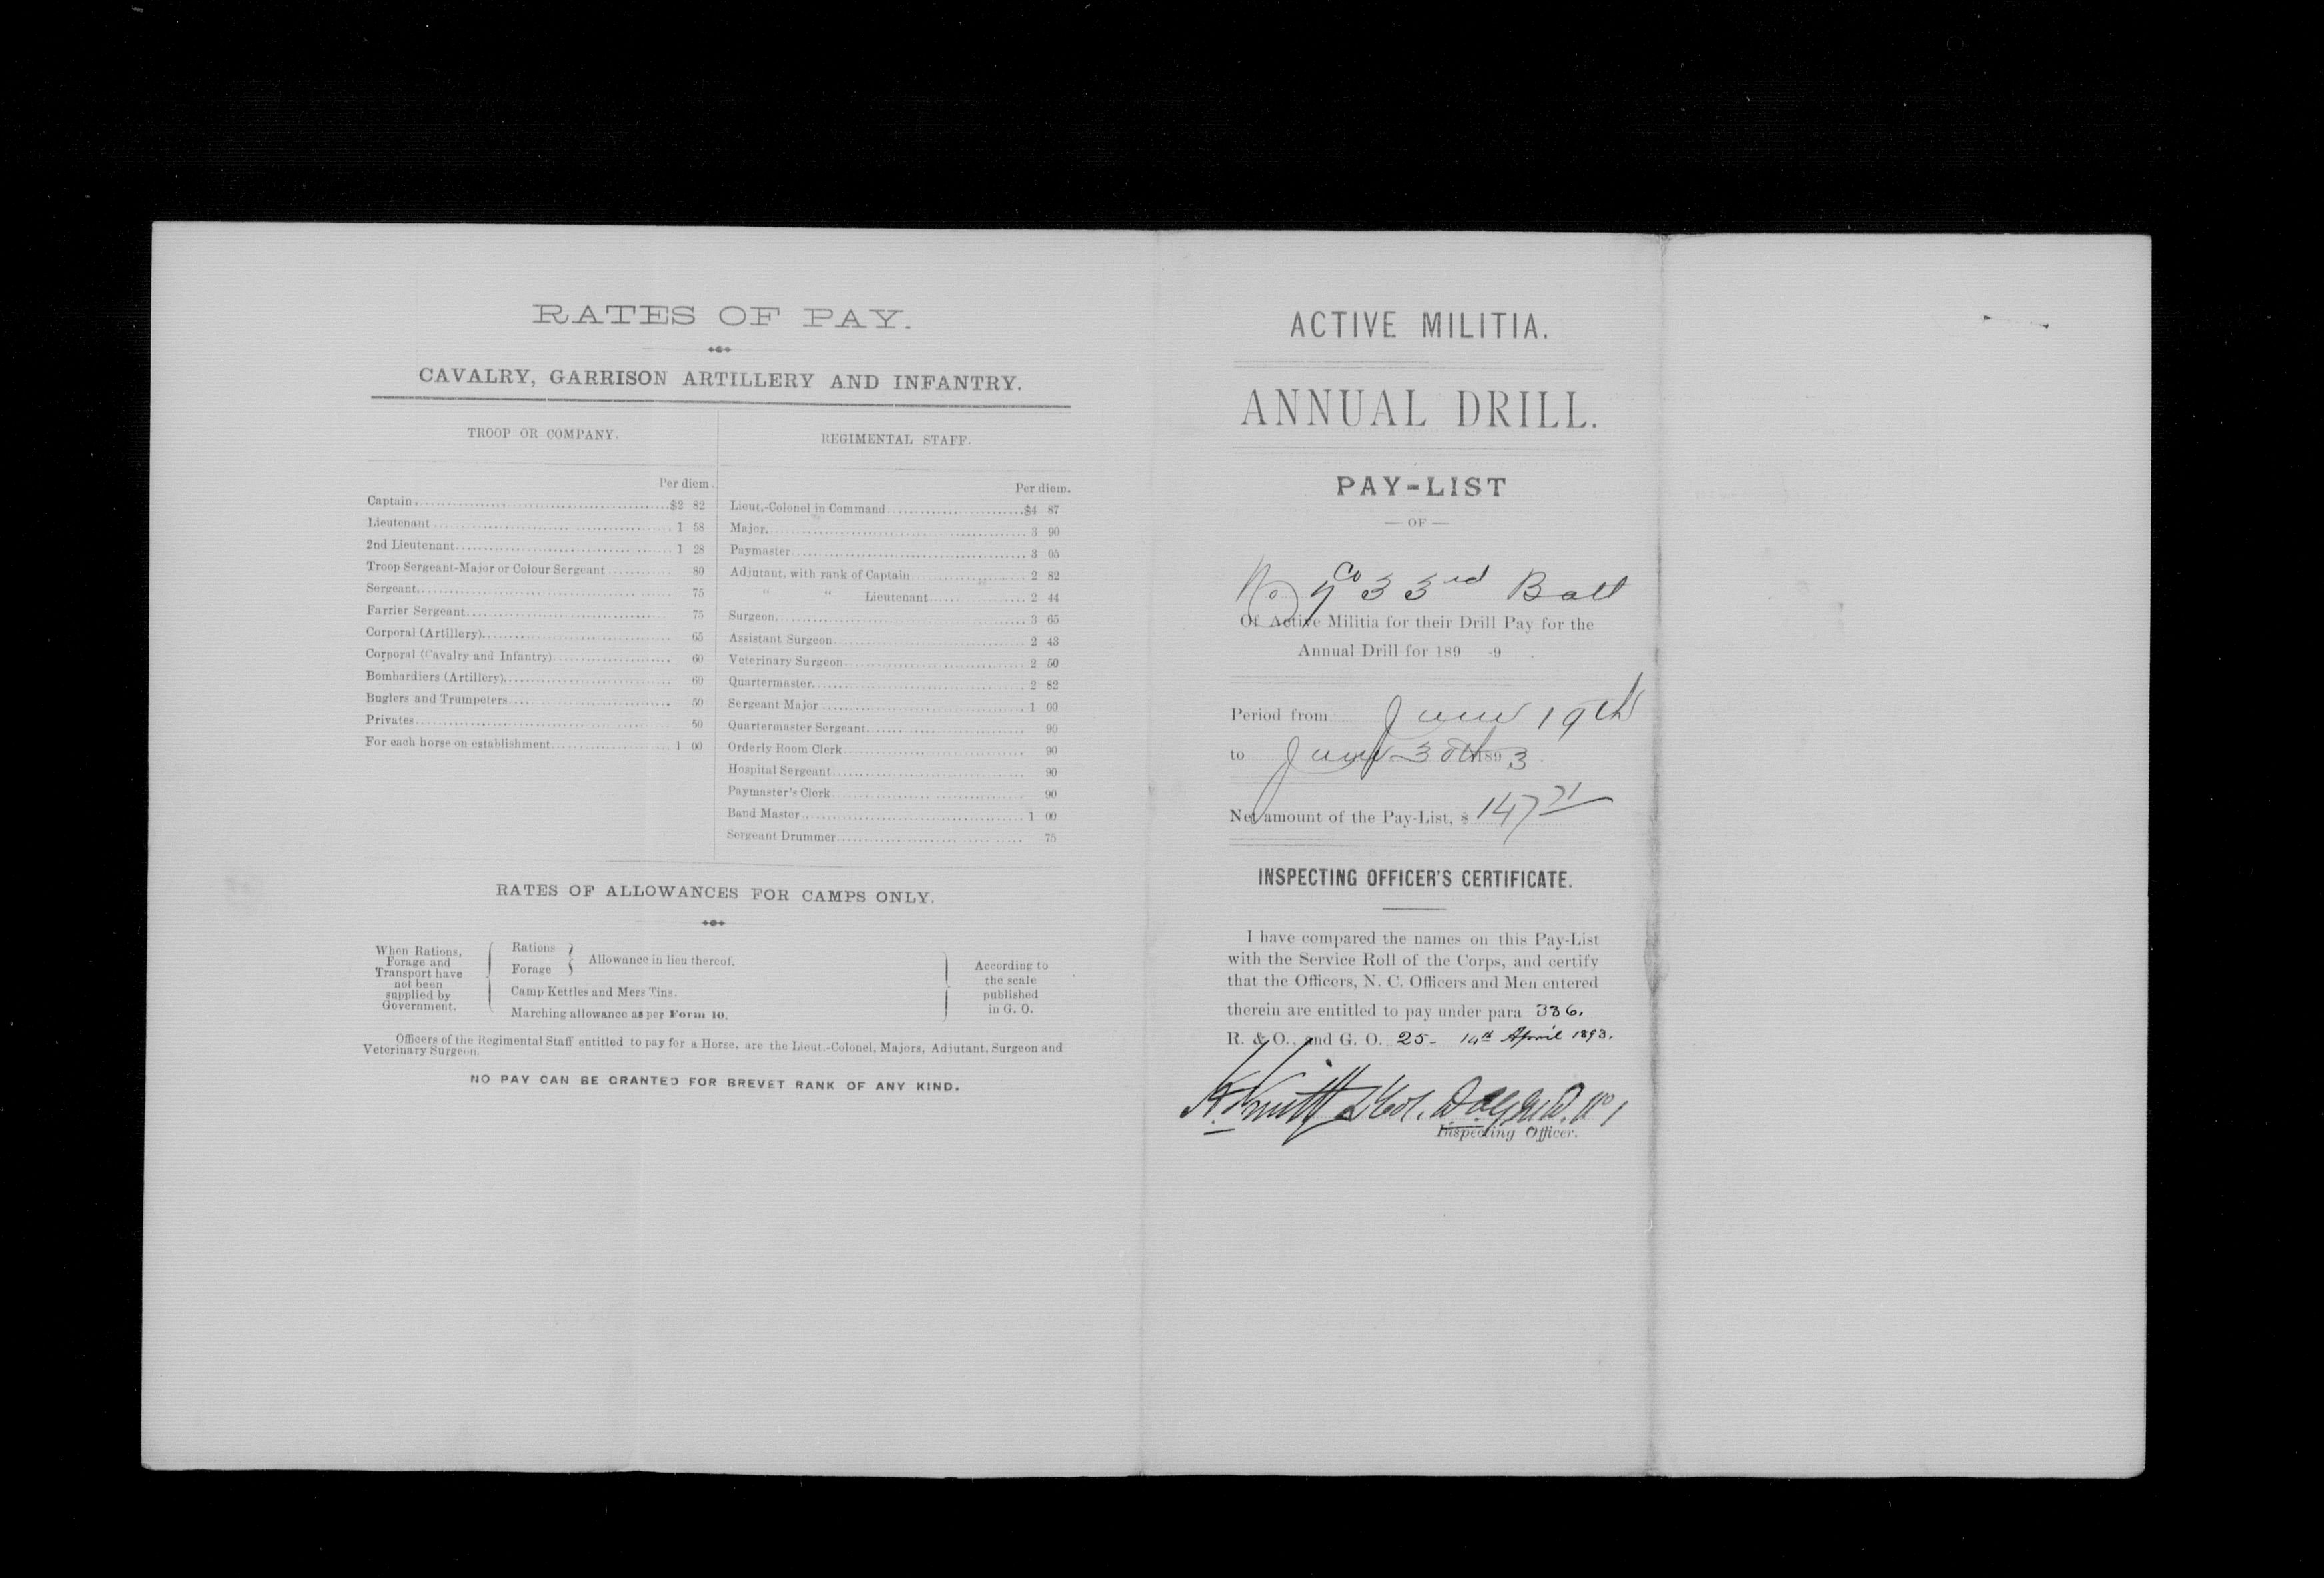 RATES OF PAY.
CAVALRY, GARRISON ARTILLERY AND INFANTRY.
TROOP OR COMPANY.
Per diem.
Captain $2 82
Lieutenant 1 58
2nd Lieutenant 1 28
Troop Sergeant-Major or Colour Sergeant 80
Sergeant 75
Farrier Sergeant 75
Corporal (Artillery) 65
Corporal (Cavalry and Infantry) 60
Bombardiers (Artillery) 60
Buglers and Trumpeters 50
Privates 50
For each horse on establishment 1 00
REGIMENTAL STAFF.
Per diem.
Lieut.-Colonel in Command $4 87
Major 3 90
Paymaster 3 05
Adjutant, with rank of Captain 2 82
" " Lieutenant 2 44
Surgeon 3 65
Assistant Surgeon 2 43
Veterinary Surgeon 2 50
Quartermaster 2 82
Sergeant Major 1 00
Quartermaster Sergeant 90
Orderly Room Clerk 90
Hospital Sergeant 90
Paymaster's Clerk 90
Band Master 1 00
Sergeant Drummer 75
RATES OF ALLOWANCES FOR CAMPS ONLY.
When Rations,
Forage and
Transport have
not been
supplied by
Government.
Rations
Forage
Allowance in lieu thereof.
Camp Kettles and Mess Tins.
Marching allowance as per Form 10.
According to
the scale
published
in G. O.
Officers of the Regimental Staff entitled to pay for a Horse, are the Lieut.-Colonel, Majors, Adjutant, Surgeon and
Veterinary Surgeon.
NO PAY CAN BE GRANTED FOR BREVET RANK OF ANY KIND.
ACTIVE MILITIA.
ANNUAL DRILL.
PAY-LIST
— OF —
No Co 33rd Batt
Of Active Militia for their Drill Pay for the
Annual Drill for 189 -9 .
Period from June 19th
to June 30th 1893
Net amount of the Pay-List, $ 147 71
INSPECTING OFFICER'S CERTIFICATE.
I have compared the names on this Pay-List
with the Service Roll of the Corps, and certify
that the Officers, N. C. Officers and Men entered
therein are entitled to pay under para 336.
R. & O., and G. O. 25- 14th April 1893.
Smith Lt Col. D.A.G. M.D. No 1
Inspecting Officer.